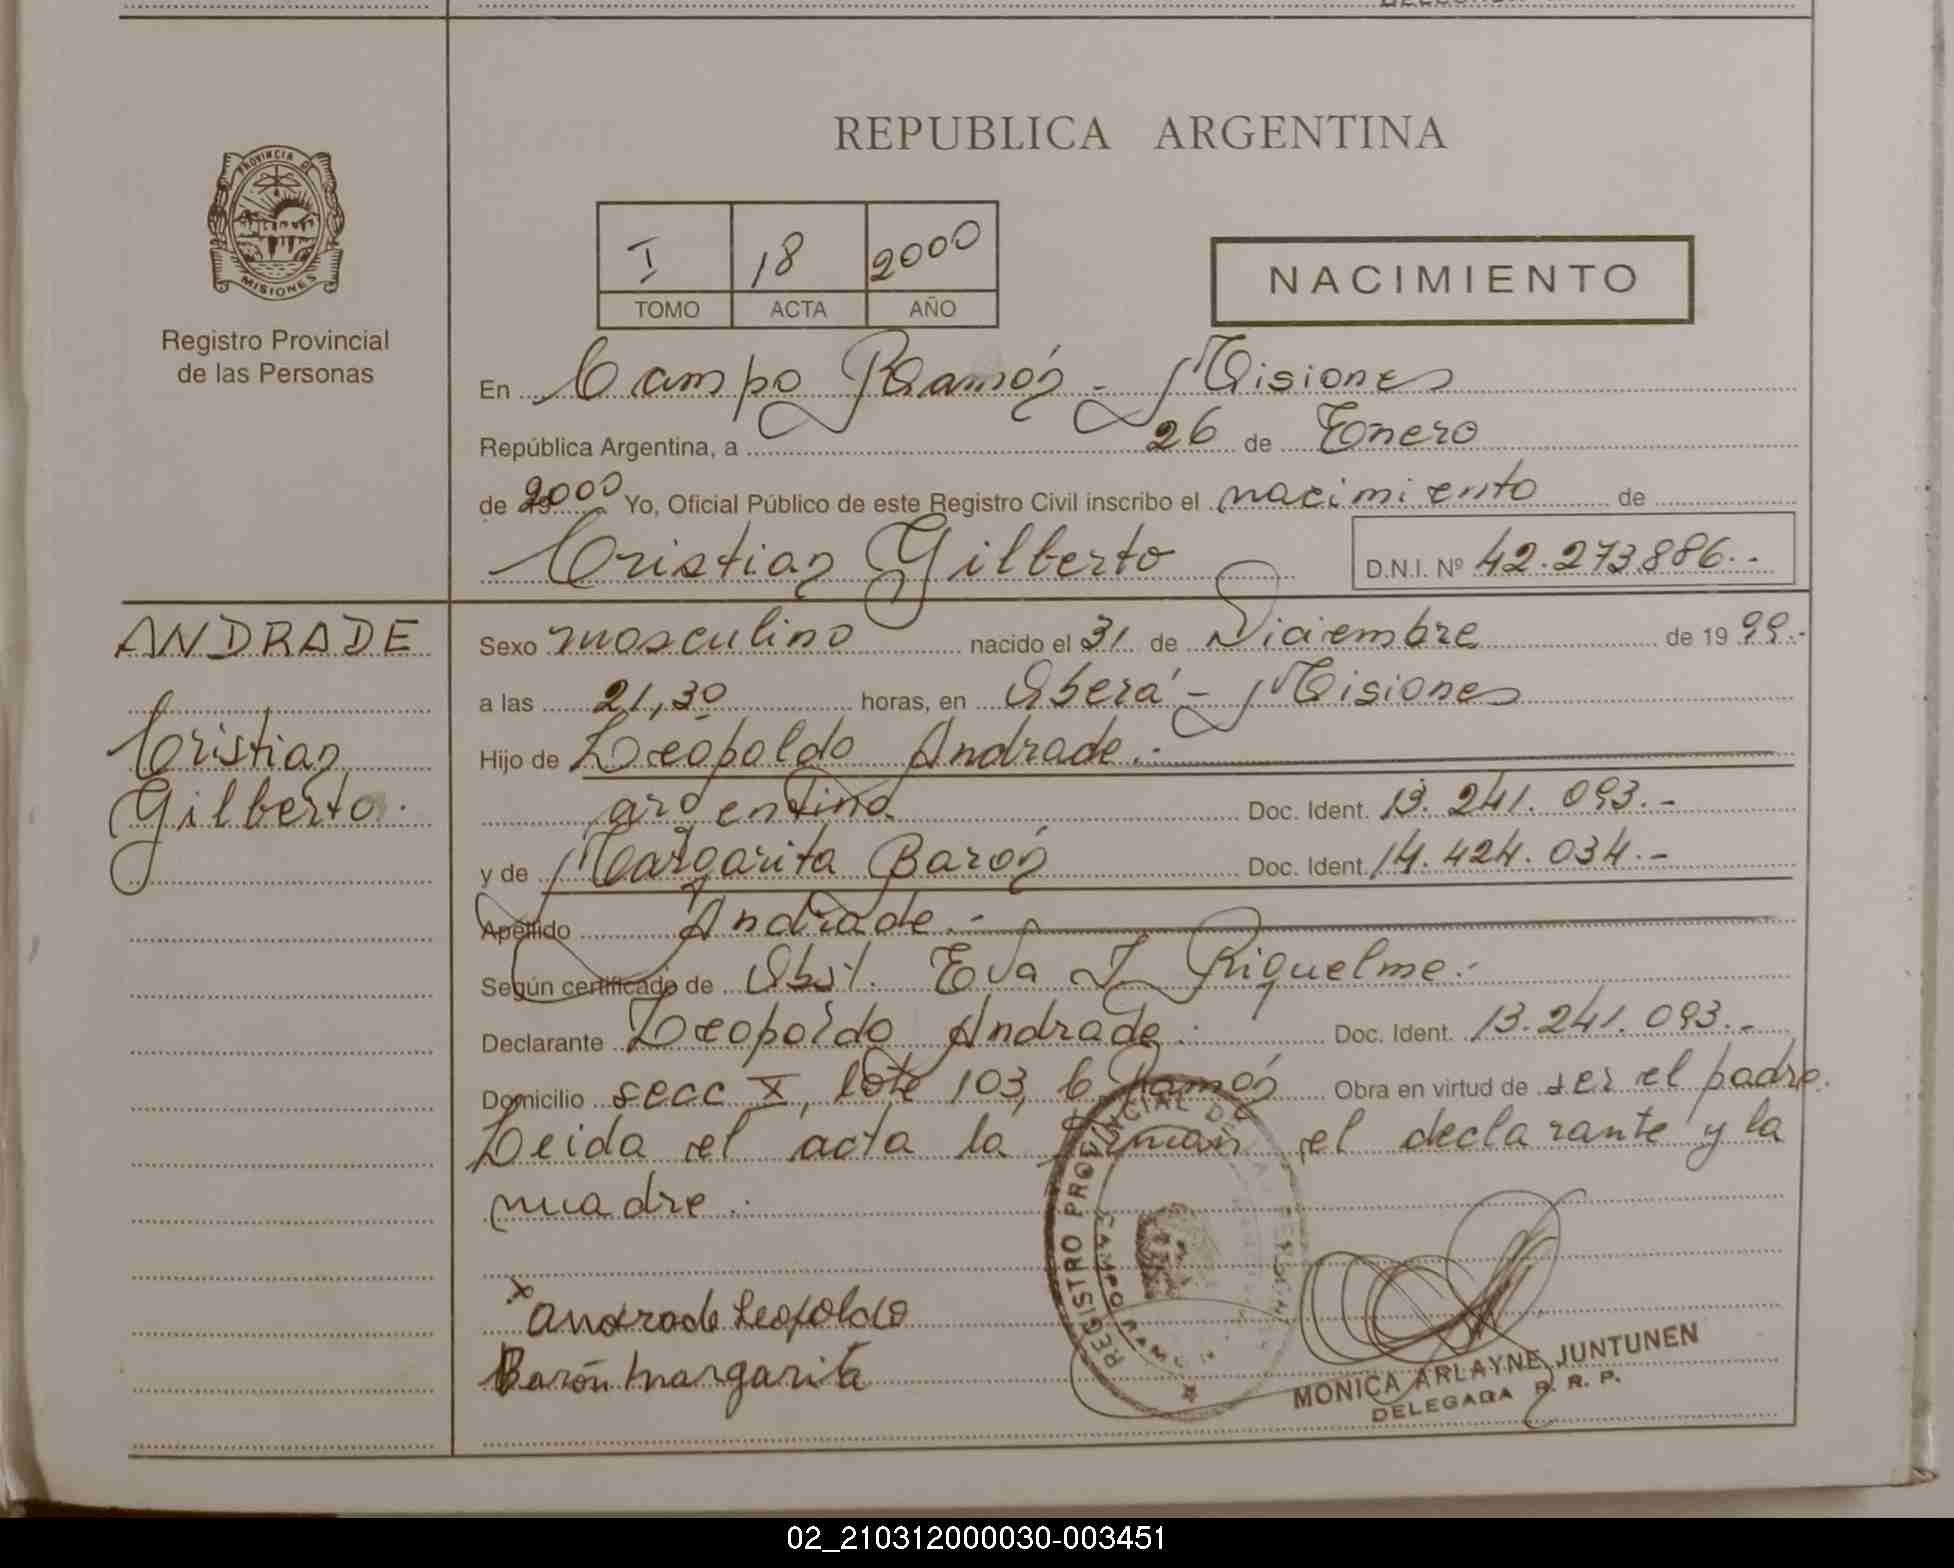 REPUBLICA ARGENTINA
PROVINCIA DE
MISIONES
Registro Provincial
de las Personas
I 18 2000
TOMO ACTA AÑO
NACIMIENTO
En Campo Ramón - Misiones
República Argentina, a 26 de Enero
de 2000 Yo, Oficial Público de este Registro Civil inscribo el nacimiento de
Cristian Gilberto D.N.I. Nº 42.273.886.-
ANDRADE
Cristian
Gilberto.
Sexo masculino nacido el 31 de Diciembre de 19 99.-
a las 21,30 horas, en Oberá - Misiones
Hijo de Leopoldo Andrade.-
argentino Doc. Ident. 13.241.093.-
y de Margarita Barón Doc. Ident. 14.424.034.-
Apellido Andrade.-
Según certificado de Obst. Eva I. Riquelme.-
Declarante Leopoldo Andrade.- Doc. Ident. 13.241.093.-
Domicilio secc X, lote 103, C. Ramón Obra en virtud de ser el padre.
Leida el acta la firman el declarante y la
madre.-
x Andrade Leopoldo
Barón Margarita
REGISTRO PROVINCIAL DE LAS PERSONAS
CAMPO RAMON
MONICA ARLAYNE JUNTUNEN
DELEGADA R. R. P.
02_210312000030-003451